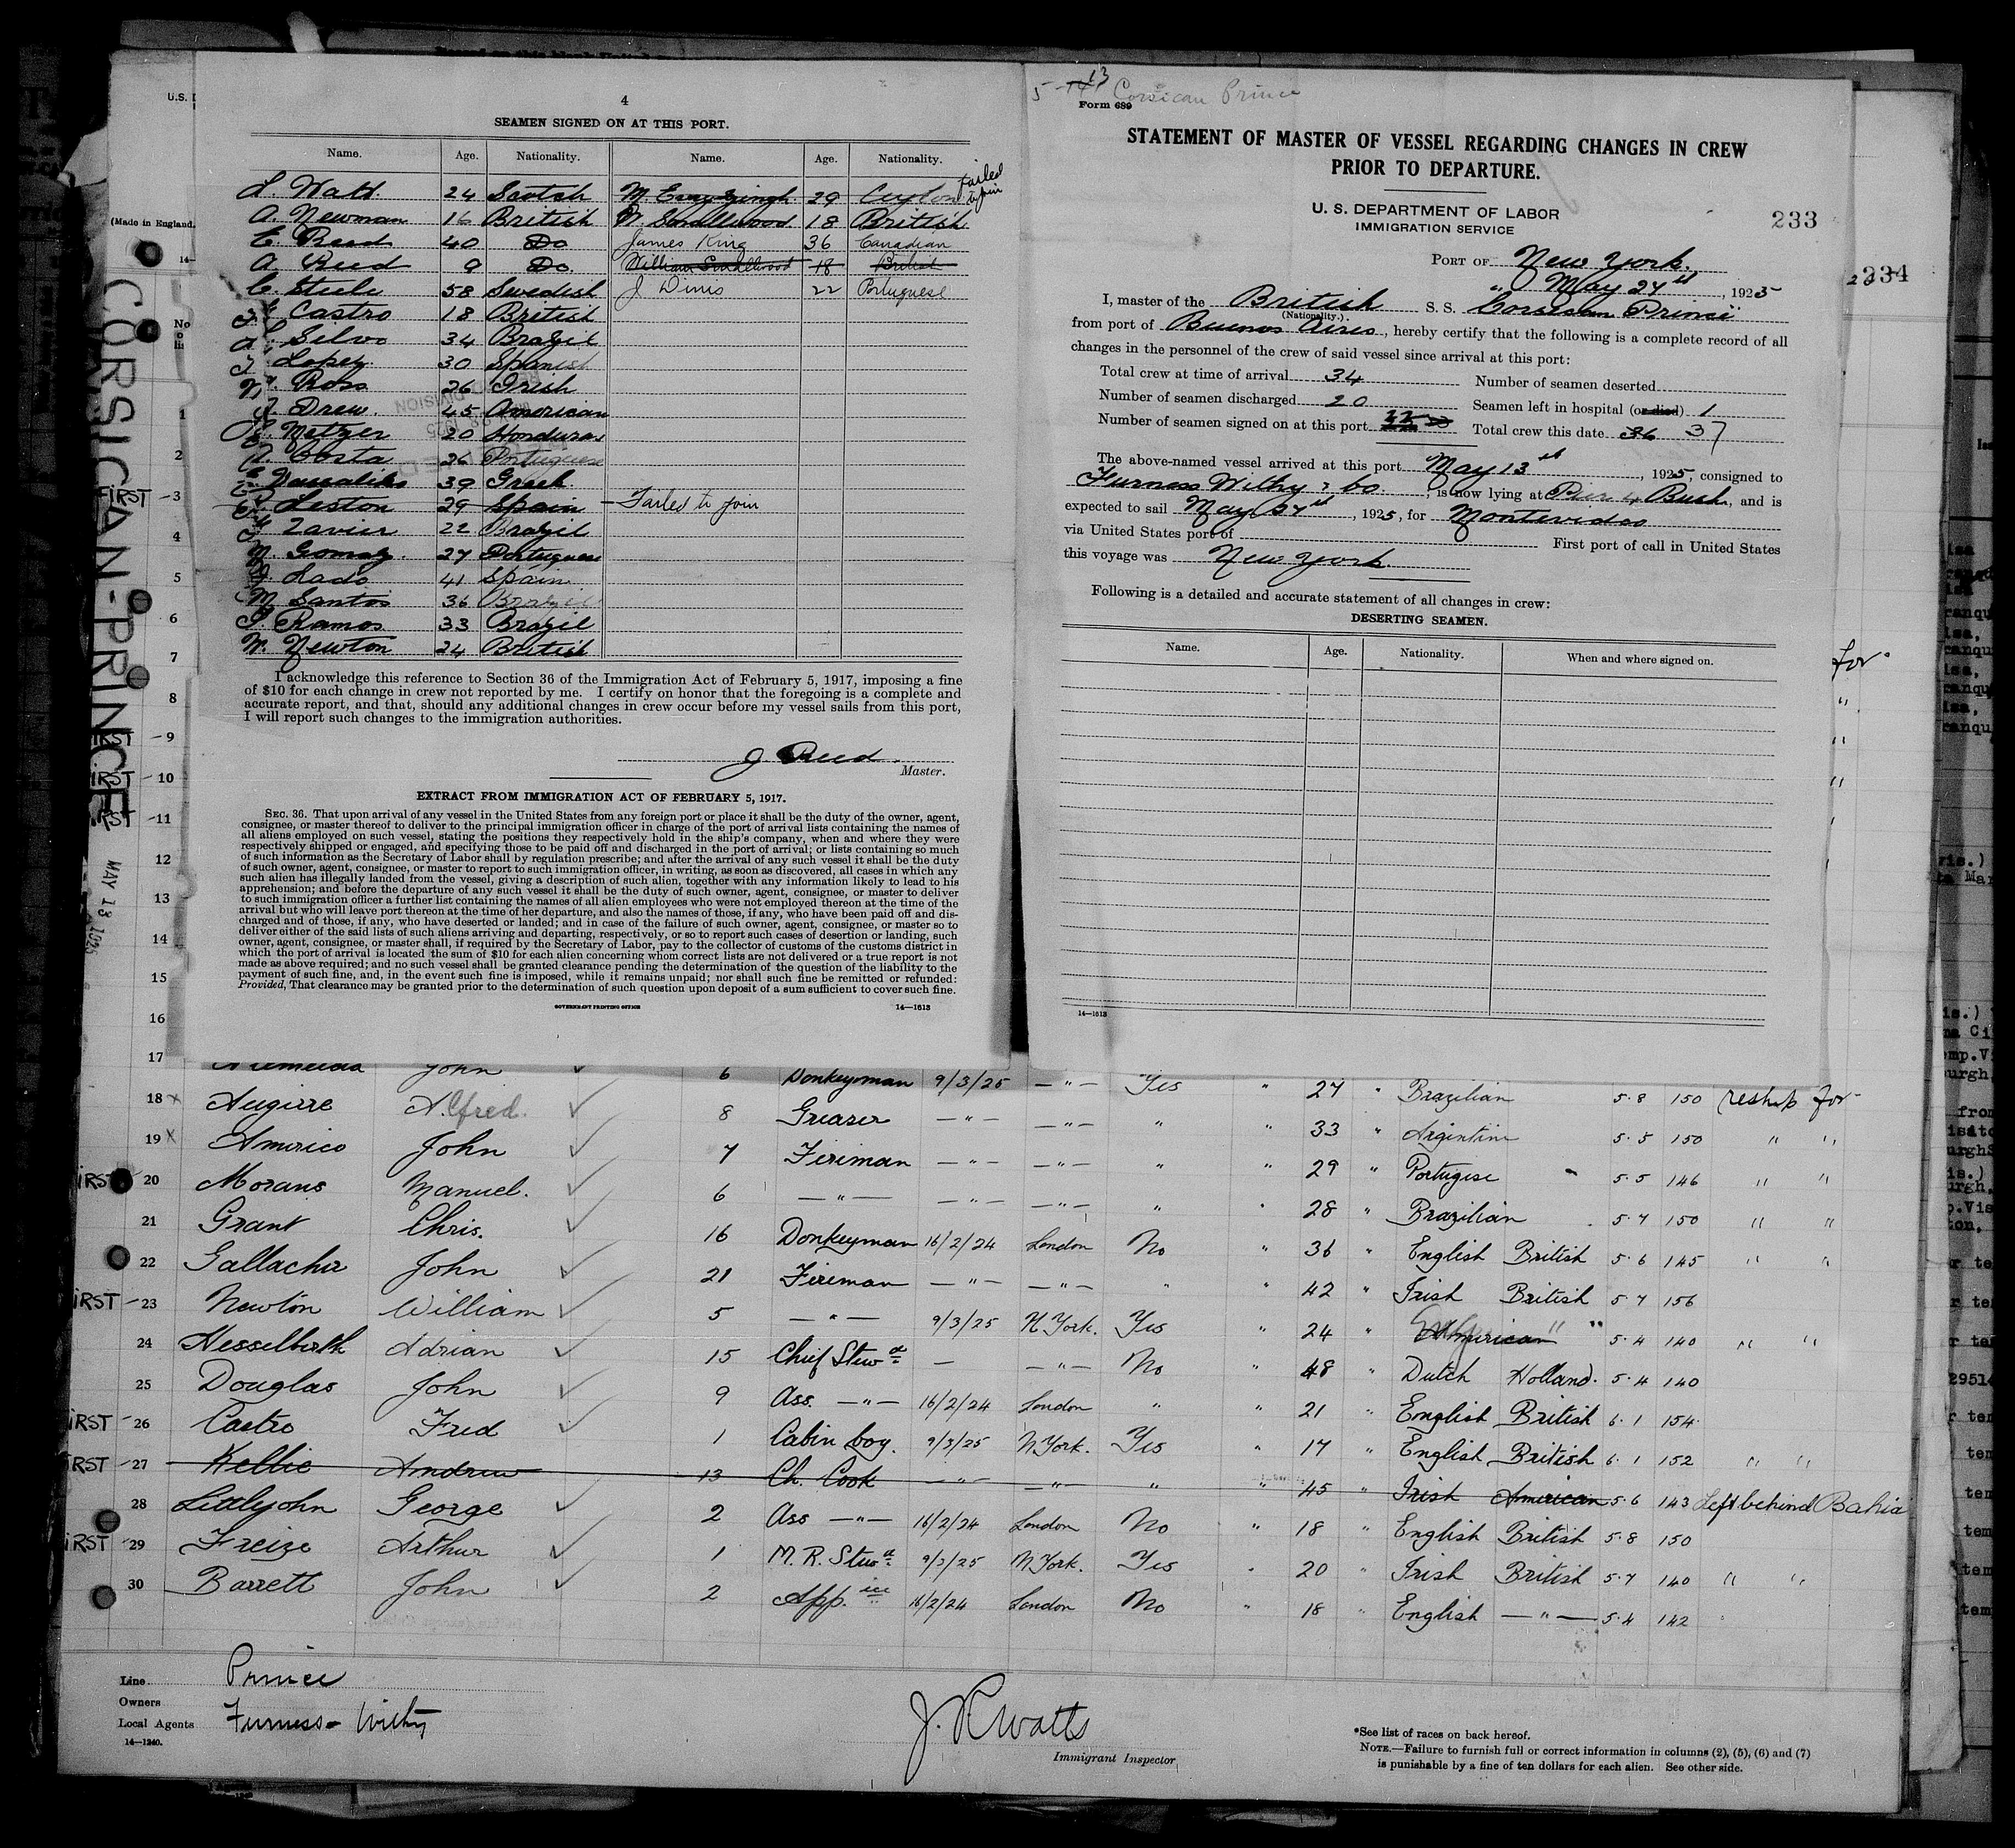 4
SEAMEN SIGNED ON AT THIS PORT.
Name. Age. Nationality. Name. Age. Nationality.
L. Watt. 24 Scotch M. 29 Ceylon Failed to join
A. Newman 16 British W. Smallwood 18 British
E. Reed 40 Do James King 36 Canadian
A. Reed 9 Do. William Smallwood 18 British
C. Steele 58 Swedish J Dinis 22 Portuguese
F. Castro 18 British
Silva 34 Brazil
Lopez 30 Spanish
Ross 26 Irish
J. Drew. 45 American
Metzer 20 Honduras
Costa 26 Portuguese
39 Greek
Leston 29 Spain - Failed to join
Zavier 22 Brazil
M. Gomez. 27 Portuguese
Lado 41 Spain
M Santos 36 Brazil
Ramos 33 Brazil
W. Newton 24 British
I acknowledge this reference to Section 36 of the Immigration Act of February 5, 1917, imposing a fine
of $10 for each change in crew not reported by me. I certify on honor that the foregoing is a complete and
accurate report, and that, should any additional changes in crew occur before my vessel sails from this port,
I will report such changes to the immigration authorities.
J Reed.
Master.
EXTRACT FROM IMMIGRATION ACT OF FEBRUARY 5, 1917.
SEC. 36. That upon arrival of any vessel in the United States from any foreign port or place it shall be the duty of the owner, agent,
consignee, or master thereof to deliver to the principal immigration officer in charge of the port of arrival lists containing the names of
all aliens employed on such vessel, stating the positions they respectively hold in the ship's company, when and where they were
respectively shipped or engaged, and specifying those to be paid off and discharged in the port of arrival; or lists containing so much
of such information as the Secretary of Labor shall by regulation prescribe; and after the arrival of any such vessel it shall be the duty
of such owner, agent, consignee, or master to report to such immigration officer, in writing, as soon as discovered, all cases in which any
such alien has illegally landed from the vessel, giving a description of such alien, together with any information likely to lead to his
apprehension; and before the departure of any such vessel it shall be the duty of such owner, agent, consignee, or master to deliver
to such immigration officer a further list containing the names of all alien employees who were not employed thereon at the time of the
arrival but who will leave port thereon at the time of her departure, and also the names of those, if any, who have been paid off and dis-
charged and of those, if any, who have deserted or landed; and in case of the failure of such owner, agent, consignee, or master so to
deliver either of the said lists of such aliens arriving and departing, respectively, or so to report such cases of desertion or landing, such
owner, agent, consignee, or master shall, if required by the Secretary of Labor, pay to the collector of customs of the customs district in
which the port of arrival is located the sum of $10 for each alien concerning whom correct lists are not delivered or a true report is not
made as above required; and no such vessel shall be granted clearance pending the determination of the question of the liability to the
payment of such fine, and, in the event such fine is imposed, while it remains unpaid; nor shall such fine be remitted or refunded:
Provided, That clearance may be granted prior to the determination of such question upon deposit of a sum sufficient to cover such fine.
GOVERNMENT PRINTING OFFICE 14—1613
5 13 Corsican Prince
Form 689
STATEMENT OF MASTER OF VESSEL REGARDING CHANGES IN CREW
PRIOR TO DEPARTURE.
U. S. DEPARTMENT OF LABOR
IMMIGRATION SERVICE
233
234
PORT OF New York.
May 27th, 1925
I, master of the British S. S. Corsican Prince
(Nationality.)
from port of Buenos Aires, hereby certify that the following is a complete record of all
changes in the personnel of the crew of said vessel since arrival at this port:
Total crew at time of arrival 34 Number of seamen deserted
Number of seamen discharged 20 Seamen left in hospital (or died) 1
Number of seamen signed on at this port Total crew this date 36 37
The above-named vessel arrived at this port May 13th, 1925, consigned to
Furness Withy & Co., is now lying at Pier 4 Bush, and is
expected to sail May 27th, 1925, for Montevideo
via United States port of First port of call in United States
this voyage was New York.
Following is a detailed and accurate statement of all changes in crew:
DESERTING SEAMEN.
Name. Age. Nationality. When and where signed on.
14—1613
U.S.
(Made in England.
CORSICAN-PRINCE
MAY 13 1925
1
2
FIRST - 3
4
5
6
7
8
FIRST - 9
FIRST - 10
FIRST - 11
12
13
14
15
16
17 John 6 Donkeyman 9/3/25 — " — Yes " 27 " Brazilian 5.8 150 reship for
18 x Augirre Alfred. 8 Greaser — " — — " — " " 33 " Argentine 5.5 150 " "
19 x Americo John 7 Fireman — " — — " — " " 29 " Portugese 5.5 146 " "
FIRST 20 Morans Manuel. 6 — " — — " — — " — " " 28 " Brazilian 5.7 150 " "
21 Grant Chris. 16 Donkeyman 16/2/24 London No " 36 " English British 5.6 145 " "
22 Gallacher John 21 Fireman — " — — " — " " 42 " Irish British 5.7 156
FIRST - 23 Newton William 5 — " — 9/3/25 N York. Yes " 24 " American " " 5.4 140 " "
24 Hesselberth Adrian 15 Chief Stewd — — " — No " 48 " Dutch Holland. 5.4 140
25 Douglas John 9 Ass. — " — 16/2/24 London " " 21 " English British 6.1 154
FIRST - 26 Castro Fred 1 Cabin boy. 9/3/25 N York. Yes " 17 " English British 6.1 152 " "
FIRST - 27 Kellie Andrew 13 Ch. Cook — " — — " — " " 45 " Irish American 5.6 143 Left behind Bahia
28 Littlejohn George 2 Ass — " — 16/2/24 London No " 18 " English British 5.8 150
FIRST - 29 Freize Arthur 1 M. R. Stewd 9/3/25 N York. Yes " 20 " Irish British 5.7 140 " "
30 Barrett John 2 App.ice 16/2/24 London No " 18 " English — " — 5.4 142
Line Prince
Owners
Local Agents Furness Withy
14—1240.
J. R Watts
Immigrant Inspector
*See list of races on back hereof.
NOTE.—Failure to furnish full or correct information in columns (2), (5), (6) and (7)
is punishable by a fine of ten dollars for each alien. See other side.